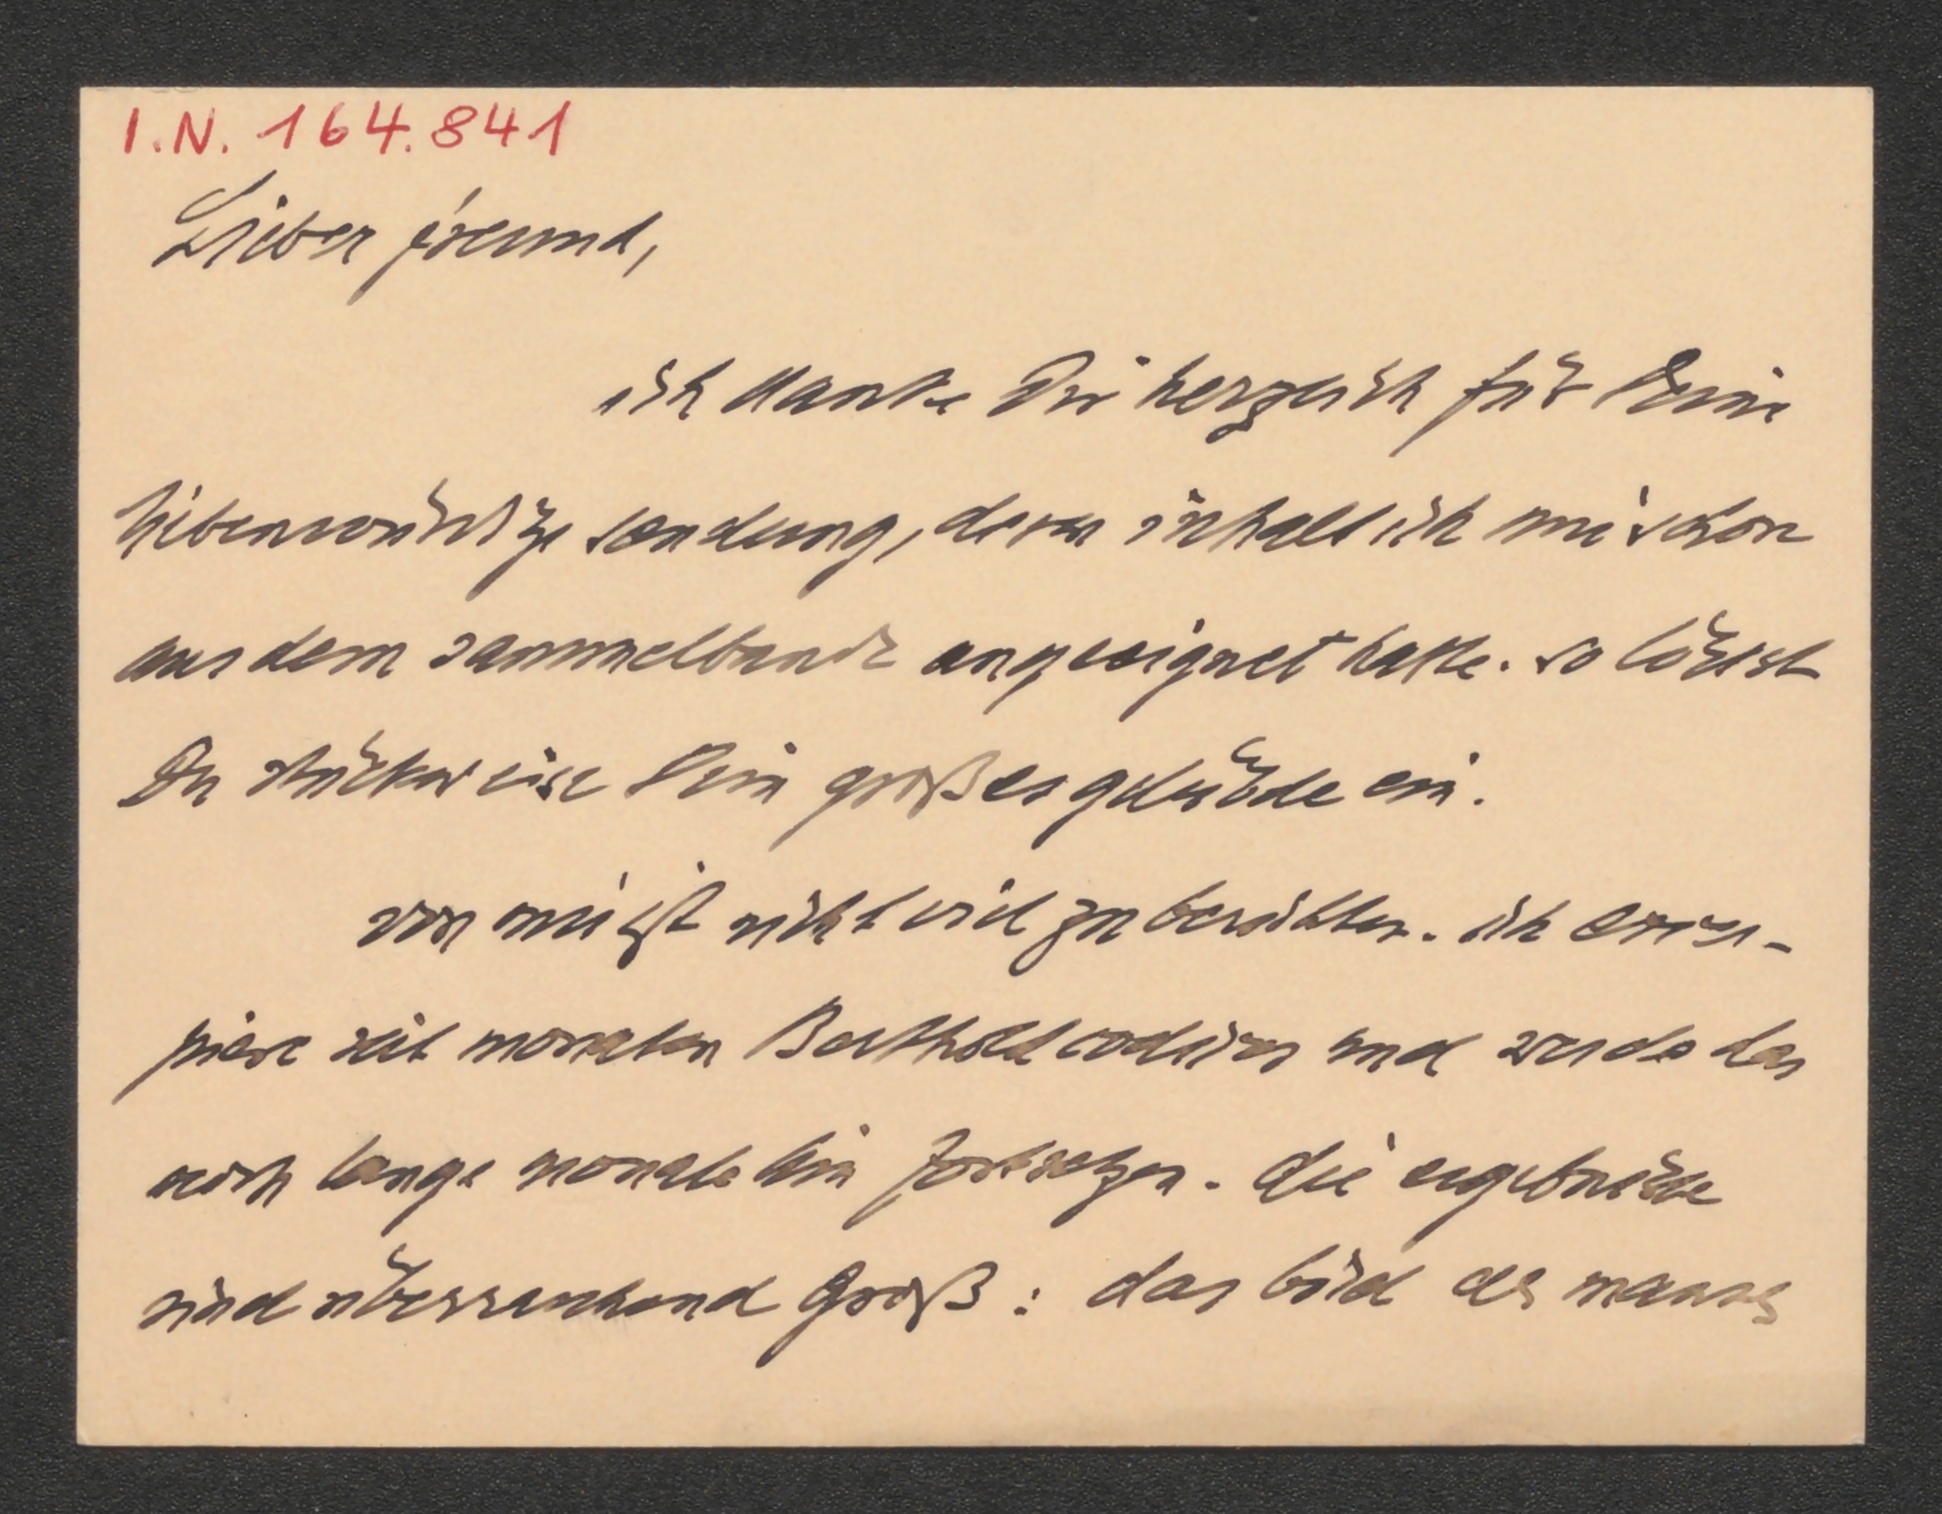 I.N. 164.841
Lieber freund,
ich danke Dir herzlich für Deine
liebenswürdige sendung, deren inhalt ich mir schon
aus dem sammelbande angeeignet hatte. so lösest
Du stückweise Dein großes gelübde ein.
von mir ist nicht viel zu berichten. ich
seit monaten Berthold codices und werde das
noch lange monate hin fortsetzen. die ergebnisse
sind überraschend groß: das bild des mannes